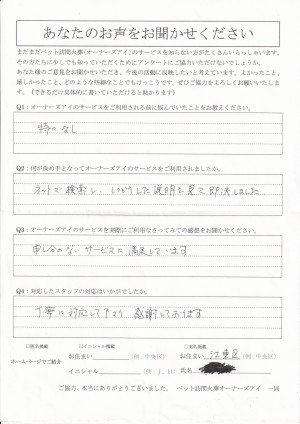 あなたのお声をお聞かせください
まだまだペット訪問火葬(オーナーズアイ)のサービスを知らない方がたくさんいらっしゃいます。
その方たちに少しでも知っていただくためにアンケートにご協力いただけないでしょうか。
あなた様のご意見をお聞かせいただき、今後の活動に反映したいと考えています。よかったこと、
嬉しかったこと、どのような些細なことでもけっこうです。ぜひご協力をよろしくお願いいたします。
(できるだけ具体的に書いていただけると助かります)
Q1:オーナーズアイのサービスをご利用される前に悩んでいたことをお教えください。
特になし
Q2:何が決め手となってオーナーズアイのサービスをご利用されましたか。
ネットで検索し、しっかりした説明を見て即決しました
Q3:オーナーズアイのサービスを実際にご利用なさってみての感想をお聞かせください。
申し分のないサービスに満足しています
Q4:対応したスタッフの対応はいかがでしたか。
丁寧に対応して下さり 感謝しております
□匿名掲載 □イニシャル掲載 □実名掲載
ホームページでご紹介
お住まい (例:中央区) お住まい 江東区 (例:中央区)
イニシャル (例:J.H) 氏名
ご協力、本当にありがとうございました。 ペット訪問火葬オーナーズアイ 一同